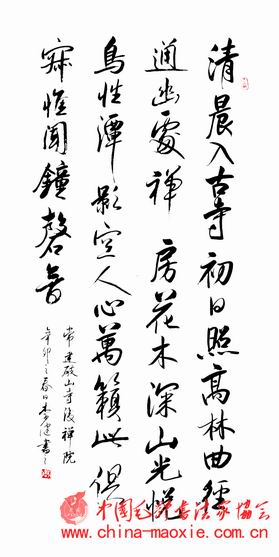 清晨入古寺初日照高林曲径
通幽处禅房花木深山光悦
鸟性潭影空人心万籁此俱
寂惟闻钟磬音
常建破山寺後禅院
辛卯之春日李健书
中国毛笔书法家协会
www.china-maoxie.com